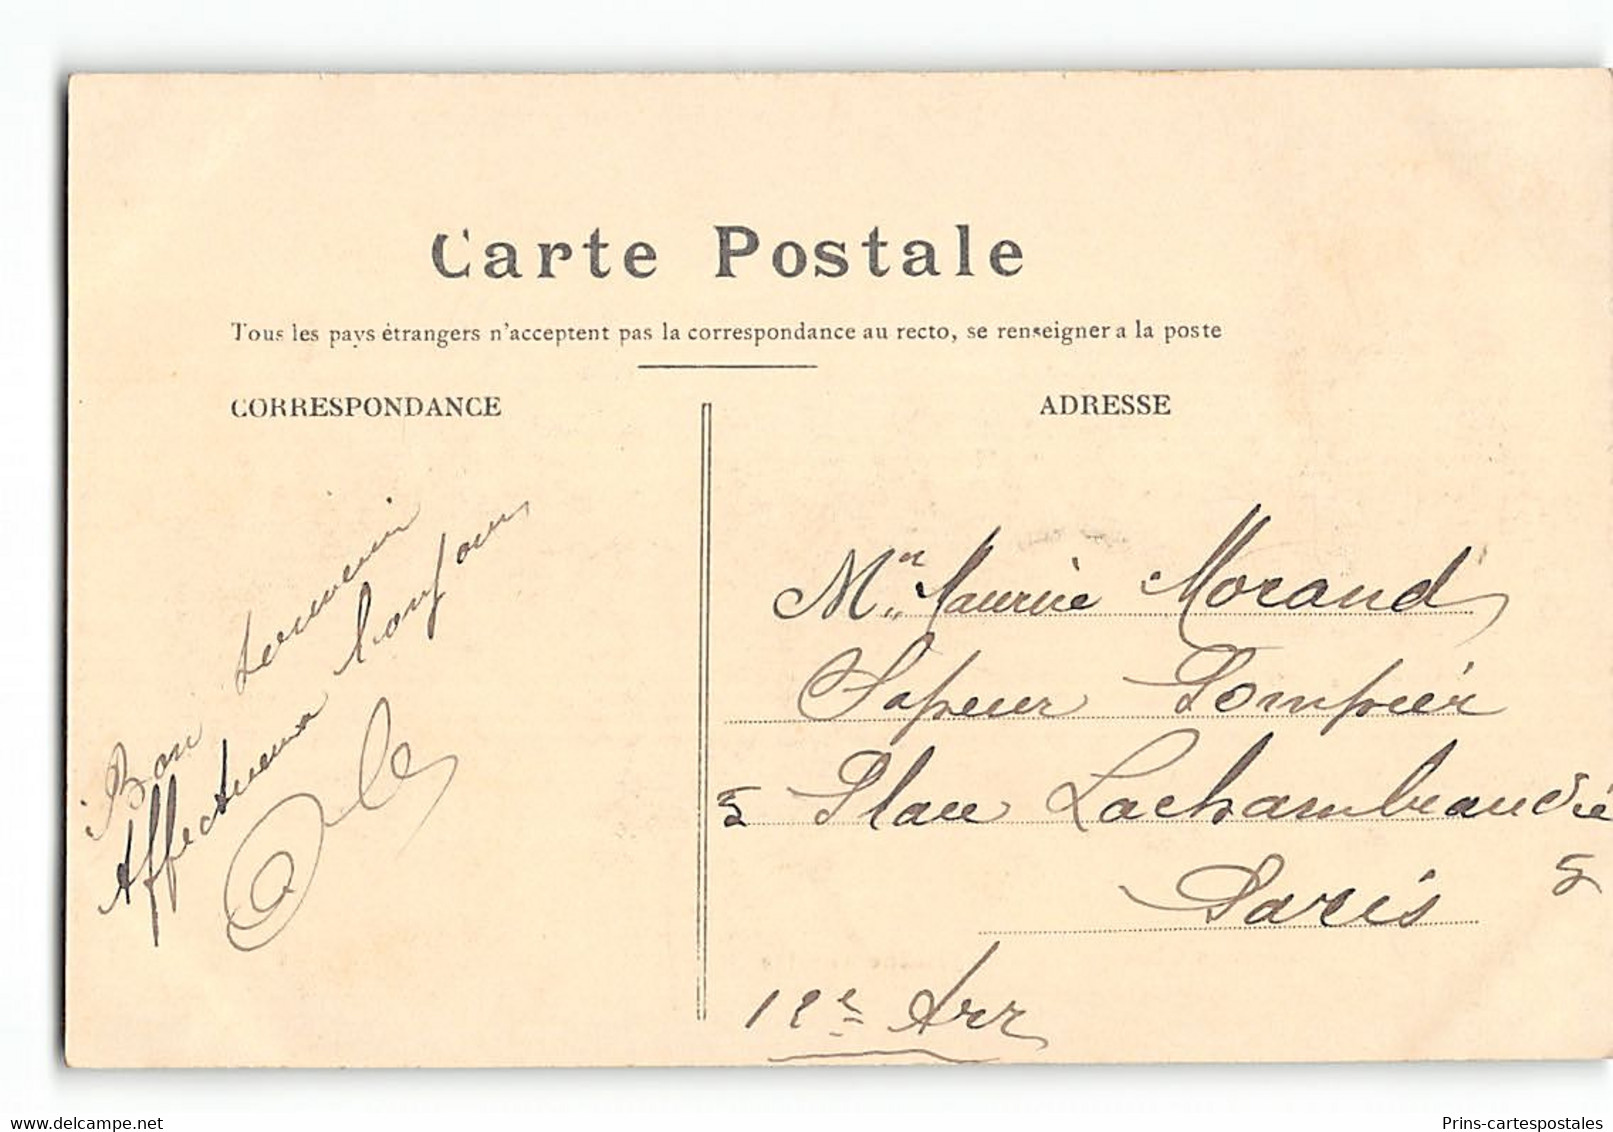 Carte Postale
Tous les pays étrangers n'acceptent pas la correspondance au recto, se renseigner a la poste
CORRESPONDANCE
ADRESSE
Bon Souvenir
Affectueux bonjour
Mr Maurice Morand
Sapeur Pompier
5 Place Lachambeaudie 5
Paris
12e Arr
Prins-cartespostales
delcampe.net